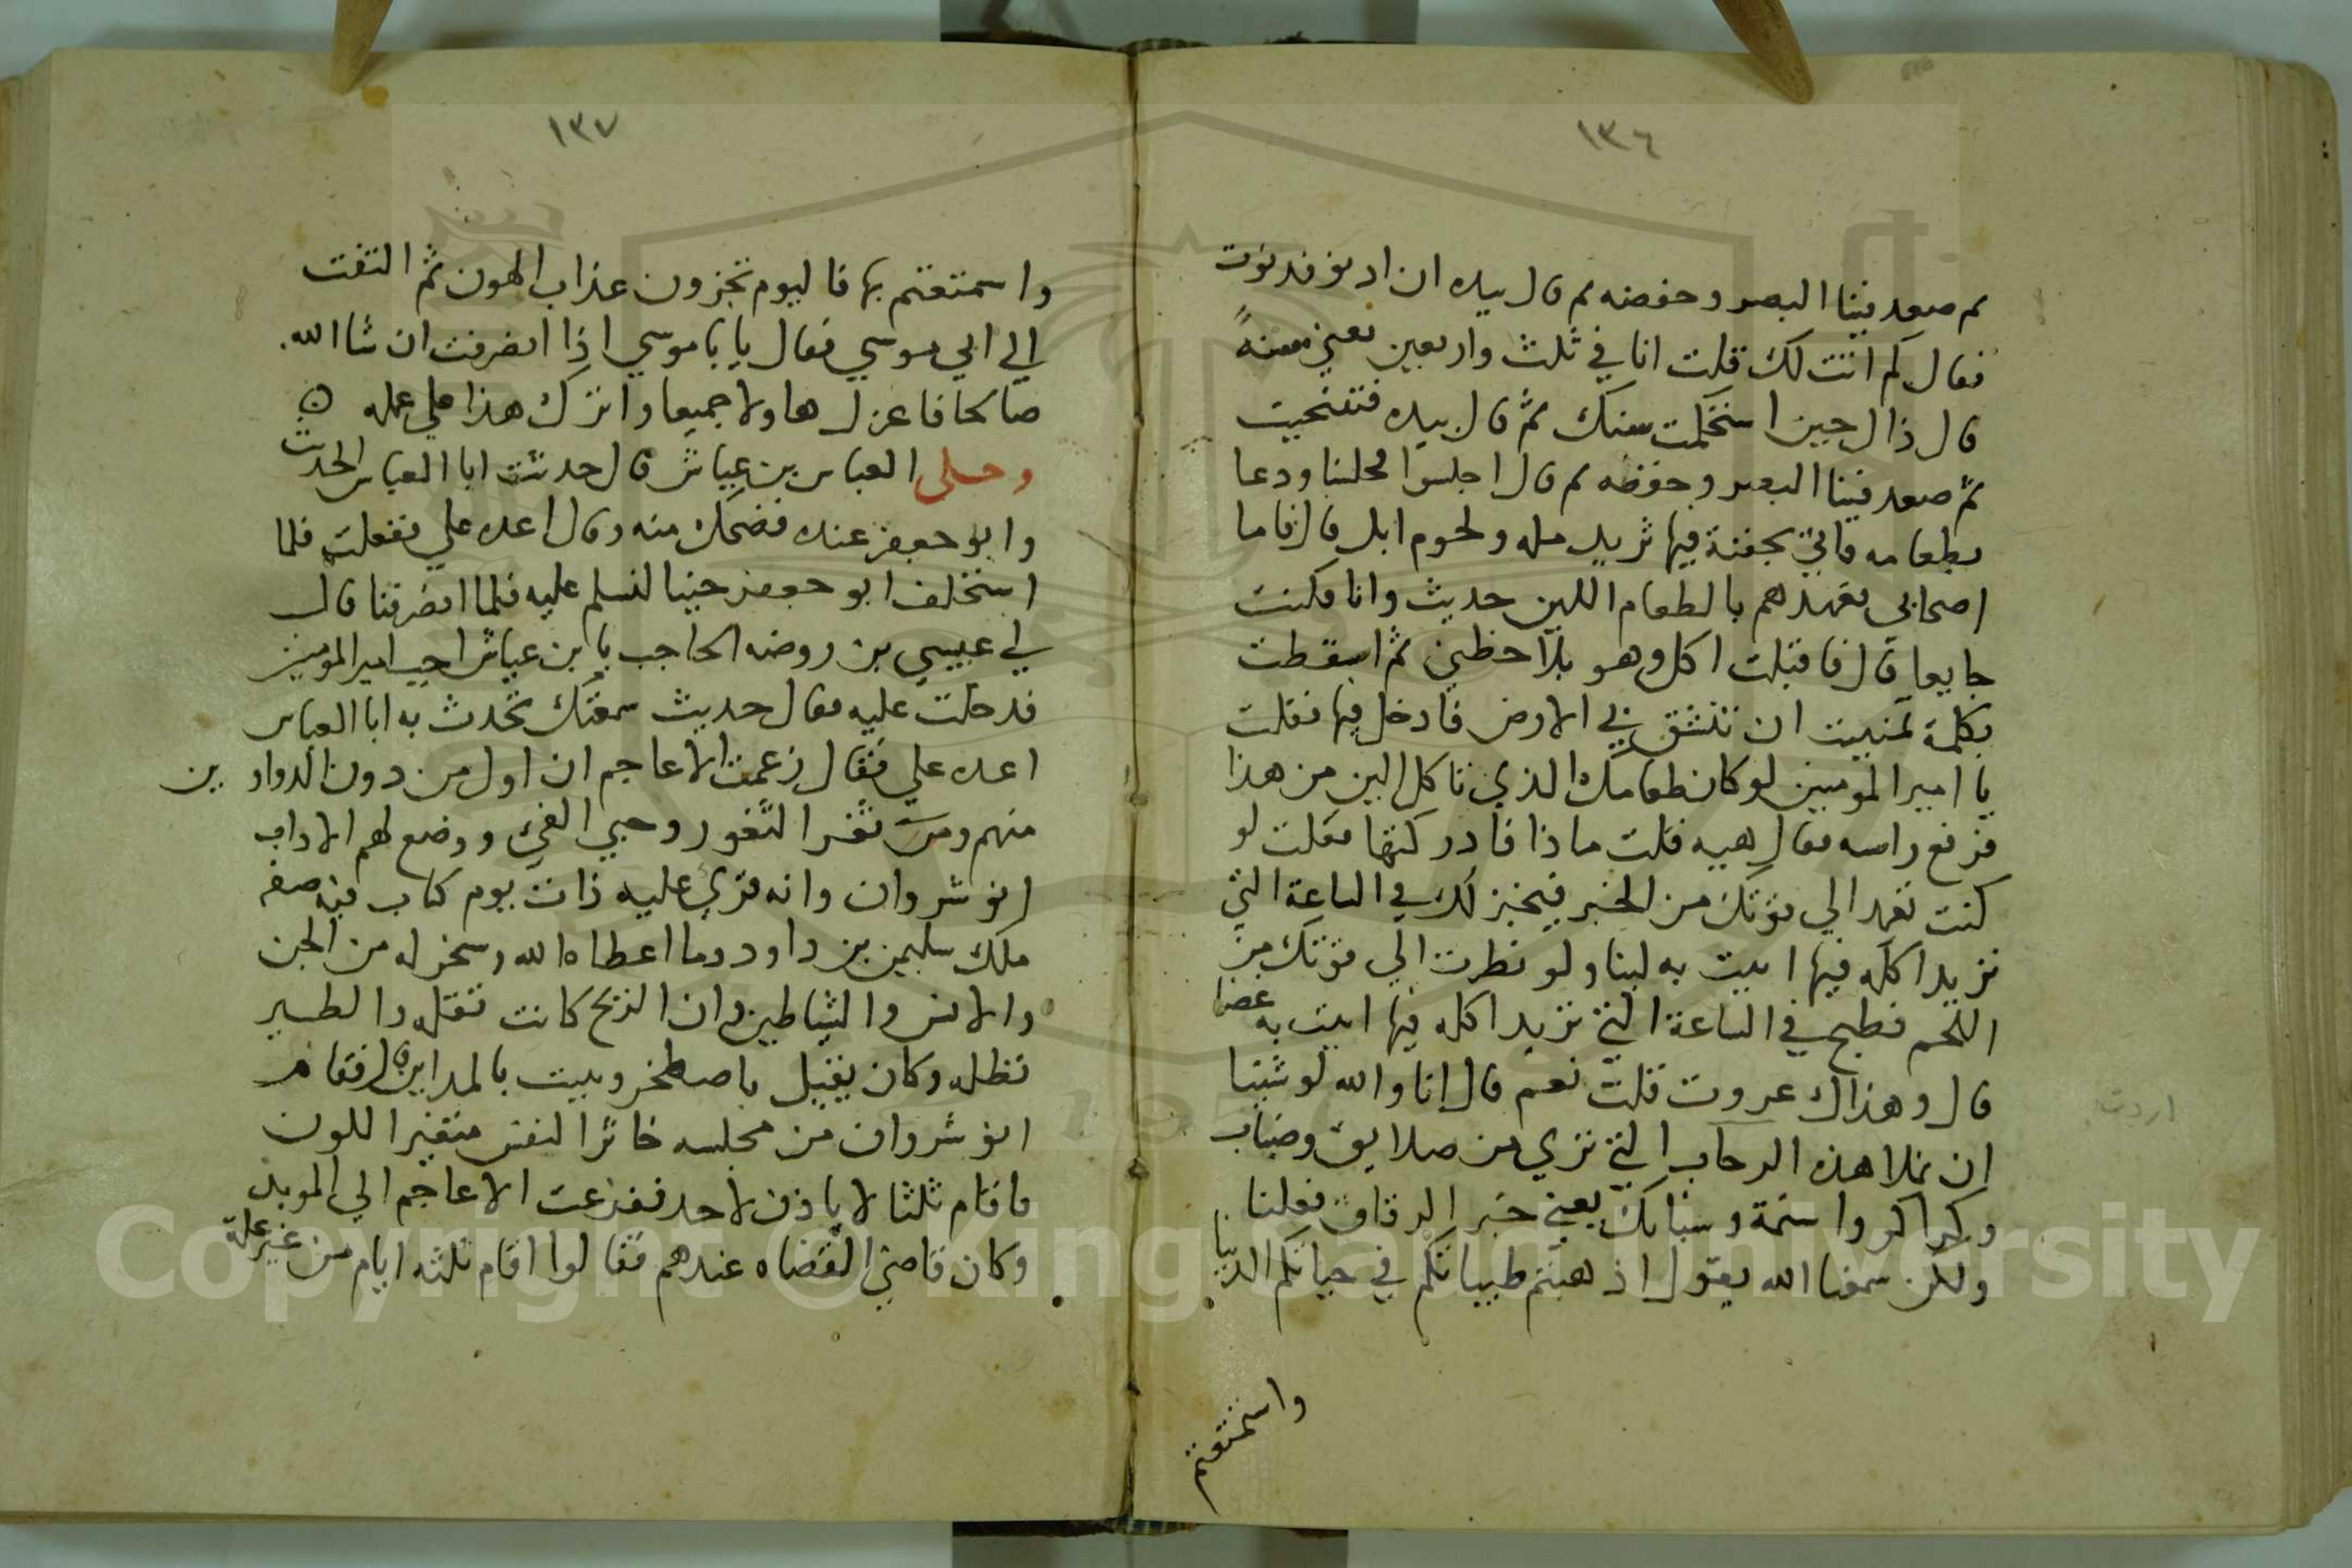 ١٣٦
ثم صعد فينا البصر وخفضه ثم قال بيده ان ادنو فدنوت
فقال كم اتت لك قلت انا في ثلث واربعين يعني سنة
قال ذال حين استحكمت سنك ثم قال بيده فتنحيت
ثم صعد فينا البصر وخفضه ثم قال اجلسوا فجلسنا ودعا
بطعامه فاتي بجفنة فيها ثريد ولحوم ابل قال فاما
اصحابي فعهدهم بالطعام اللين حديث وانا فكنت
جايعا قال فاقبلت اكل وهو يلاحظني ثم اسقطت
بكلمة تمنيت ان تنشق بي الارض فادخل فيها فقلت
يا امير المومنين لو كان طعامك الذي تاكل الين من هذا
فرفع راسه فقال هيه قلت ماذا فادركتها فقلت لو
كنت تعهد الي قوتك من الخبر فيخبز لك في الساعة التي
تريد اكله فيها اتيت به لينا ولو نظرت الي قوتك من
اللحم فطبخ في الساعة التي تريد اكله فيها اتيت به غضا
قال وهذاك عروت قلت نعم قال انا والله لو شينا
ان نملا هذه الرحاب التي تري من صلايق وضباب
وكراكر واسنمة وسبابك يعني خبر الرقاق فعلنا
ولكن سمعنا الله يقول اذهبتم طيباتكم في حياتكم الدنيا
واستمتعتم
اردت
١٣٧
واستمتعتم بها فاليوم تجزون عذاب الهون ثم التفت
الي ابي موسي فقال يا با موسي اذا انصرفت ان شا الله.
صالحا فاعزل هاولا جميعا واترك هذا علي عمله
وحكى العباس بن عياش قال حدثت ابا العباس الحديث
وابو جعفر عنده فضحك منه وقال اعده علي ففعلت فلما
استخلف ابو جعفر جينا لنسلم عليه فلما انصرفنا قال
لي عيسي بن روضه الحاجب يا بن عياش اجب امير المومنين
فدخلت عليه فقال حديث سمعتك تحدث به ابا العباس
اعده علي فقال زعمت الاعاجم ان اول من دون الدواوين
منهم ومن ثغر الثغور وجبي الفي ووضع لهم الاداب
انوشروان وانه قري عليه ذات يوم كتاب فيه صفة
ملك سليمن بن داود وما اعطاه الله وسخر له من الجن
والانس والشياطين وان الريح كانت تقله والطير
تظله وكان يقيل باصطخر ويبيت بالمداين قال فقام
انوشروان من مجلسه خاثر النفس متغير اللون
فاقام ثلثا لا ياذن لاحد ففزعت الاعاجم الي الموبد
وكان قاضي القضاه عندهم فقالوا اقام ثلثه ايام من غير علة
Copyright © King Saud University